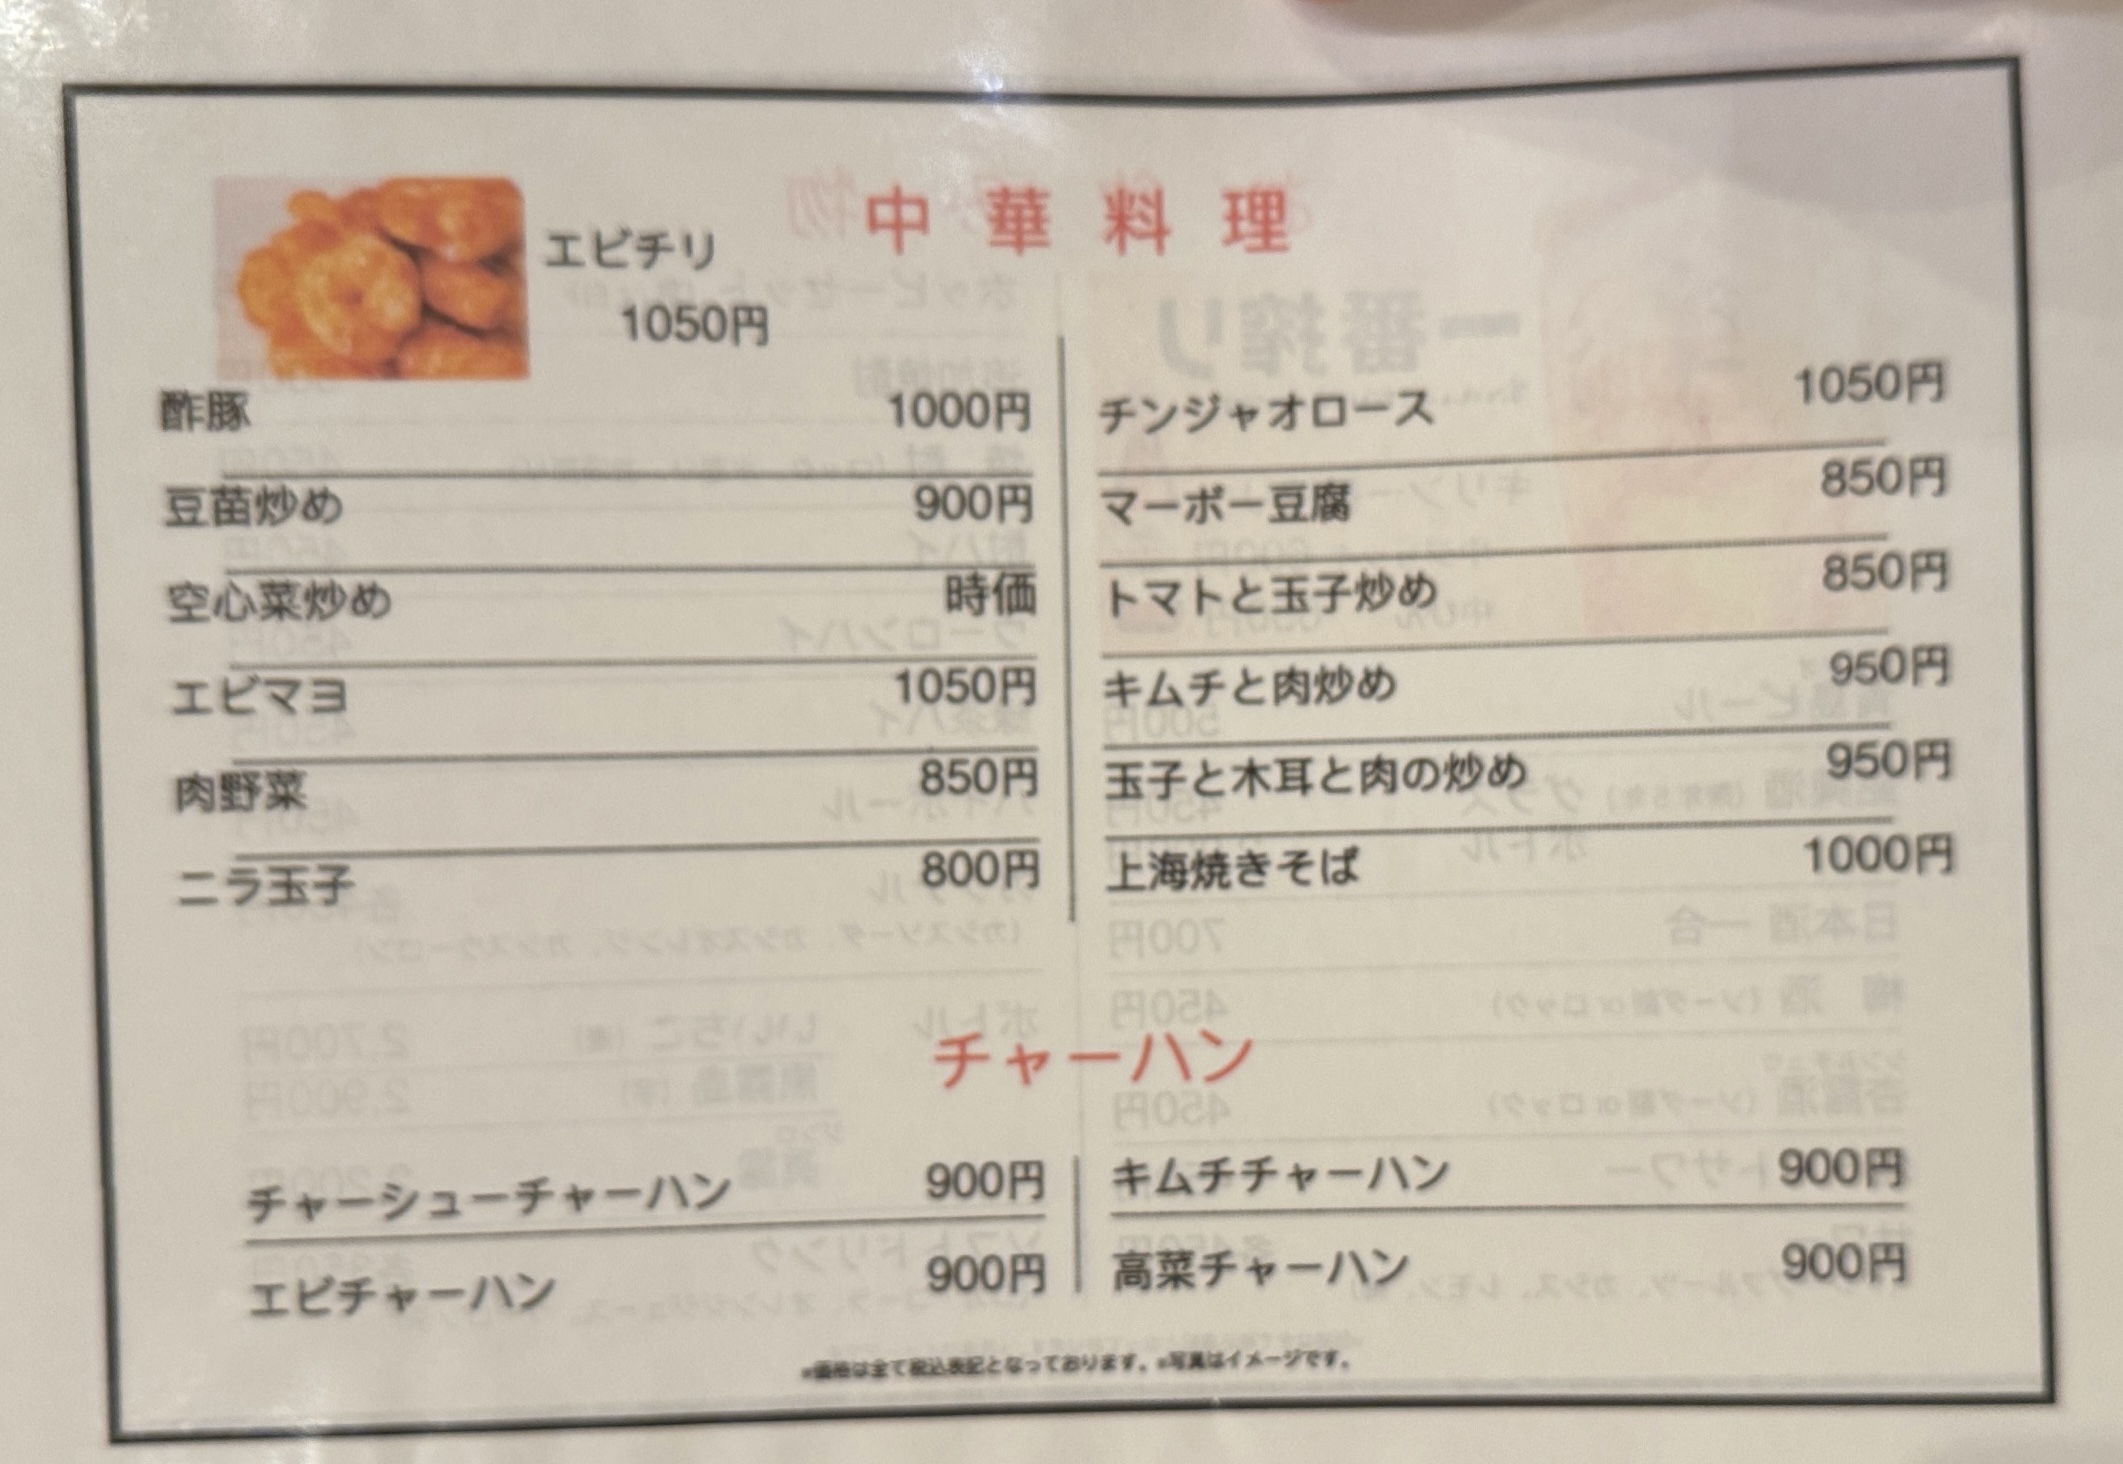 中華料理
エビチリ
1050円
酢豚 1000円
豆苗炒め 900円
空心菜炒め 時価
エビマヨ 1050円
肉野菜 850円
ニラ玉子 800円
チンジャオロース 1050円
マーボー豆腐 850円
トマトと玉子炒め 850円
キムチと肉炒め 950円
玉子と木耳と肉の炒め 950円
上海焼きそば 1000円
チャーハン
チャーシューチャーハン 900円
エビチャーハン 900円
キムチチャーハン 900円
高菜チャーハン 900円
※価格は全て税込表記となっております。※写真はイメージです。